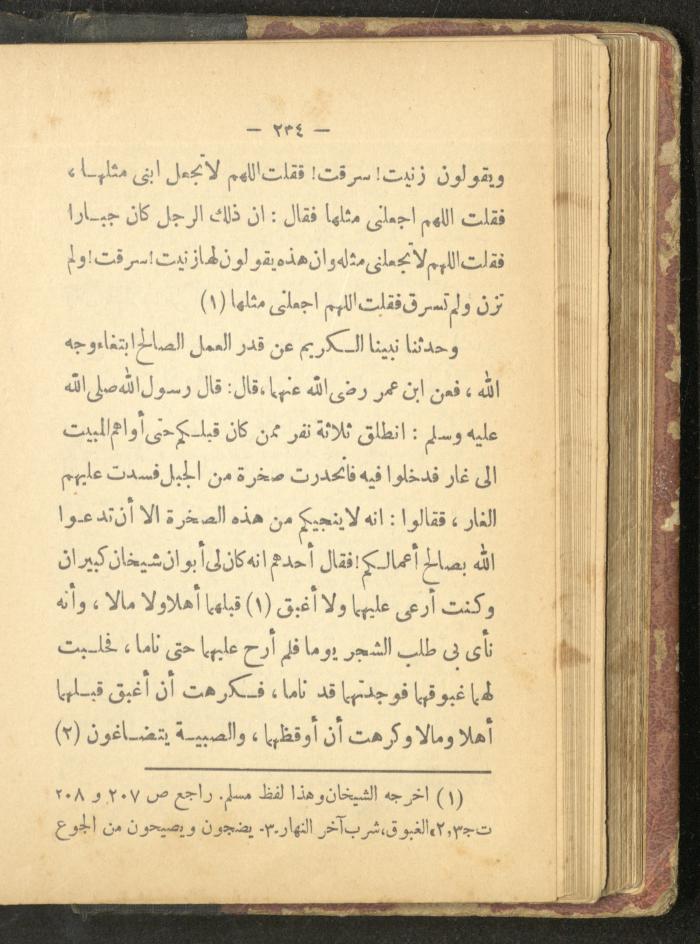 — ٢٣٤ —
ويقولون زنيت! سرقت! فقلت اللهم لاتجعل ابنى مثلهـا ،
فقلت اللهم اجعلنى مثلها فقال : ان ذلك الرجل كان جبـارا
فقلت اللهم لاتجعلنى مثله وان هذه يقولون لها زنيت! سرقت! ولم
تزن ولم تسرق فقلت اللهم اجعلنى مثلها (١)
وحدثنا نبينا الـكريم عن قدر العمل الصالح ابتغاء وجه
الله ، فعن ابن عمر رضى الله عنهما ، قال: قال رسول الله صلى الله
عليه وسلم : انطلق ثلاثة نفر ممن كان قبلـكم حتى أواهم المبيت
الى غار فدخلوا فيه فانحدرت صخرة من الجبل فسدت عليهم
الغار ، فقالوا : انه لاينجيكم من هذه الصخرة الا أن تدعـوا
الله بصالح أعمالـكم! فقال أحدهم انه كان لى أبوان شيخان كبيران
وكنت أرعى عليهما ولا أغبق (١) قبلهما أهلا ولا مالا ، وأنه
نأى بى طلب الشجر يوما فلم أرح عليهما حتى ناما ، فحلـبت
لهما غبوقهما فوجدتهما قد ناما ، فـكرهت أن أغبق قبـلهما
أهلا ومالا وكرهت أن أوقظهما ، والصبيـة يتضـاغون (٢)
(١) اخرجه الشيخان وهذا لفظ مسلم. راجع ص ٢٠٧ و ٢٠٨
ت ج٢،٣، الغبوق، شرب آخر النهار.٣- يضجون ويصيحون من الجوع